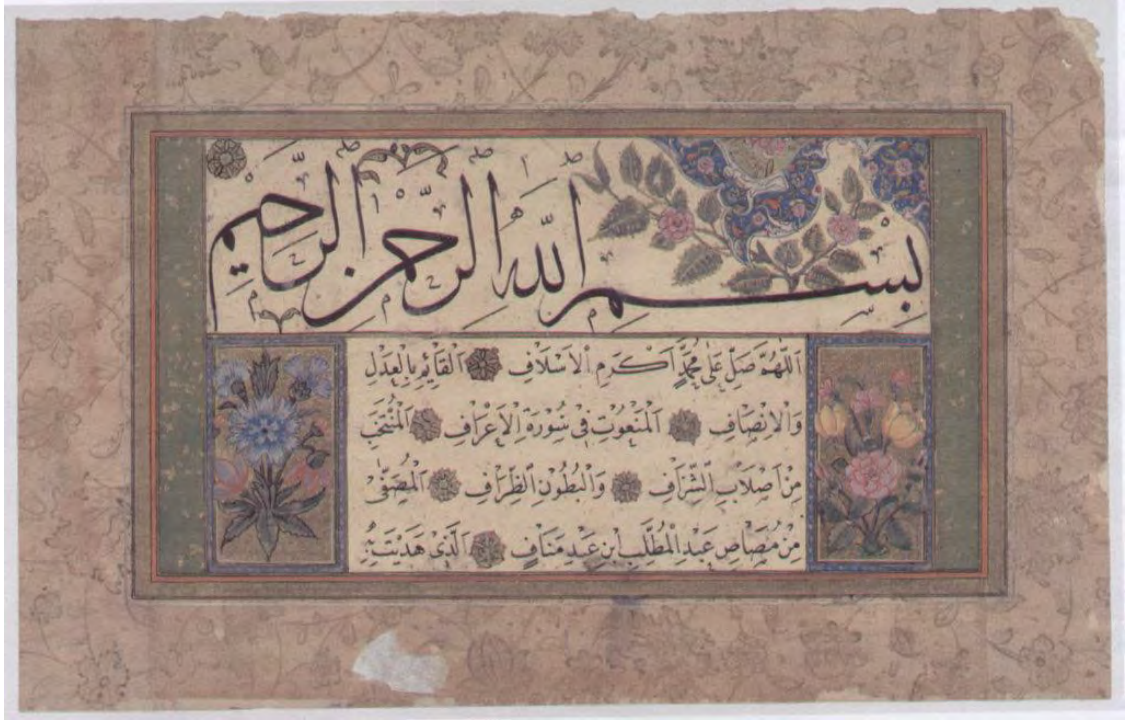 بِسْمِ اللّٰهِ الرَّحْمٰنِ الرَّحِيمِ
اَللّٰهُمَّ صَلِّ عَلٰى مُحَمَّدٍ اَكْرَمِ الْاَسْلَافِ اَلْقَائِمِ بِالْعَدْلِ
وَالْاِنْصَافِ اَلْمَنْعُوتِ فِى سُورَةِ الْاَعْرَافِ اَلْمُنْتَخَبِ
مِنْ اَصْلَابِ الشِّرَافِ وَالْبُطُونِ الظِّرَافِ اَلْمُصَفّٰى
مِنْ مُصَاصِ عَبْدِ الْمُطَّلِبِ ابْنِ عَبْدِ مَنَافٍ اَلَّذِى هَدَيْتَ بِهِ